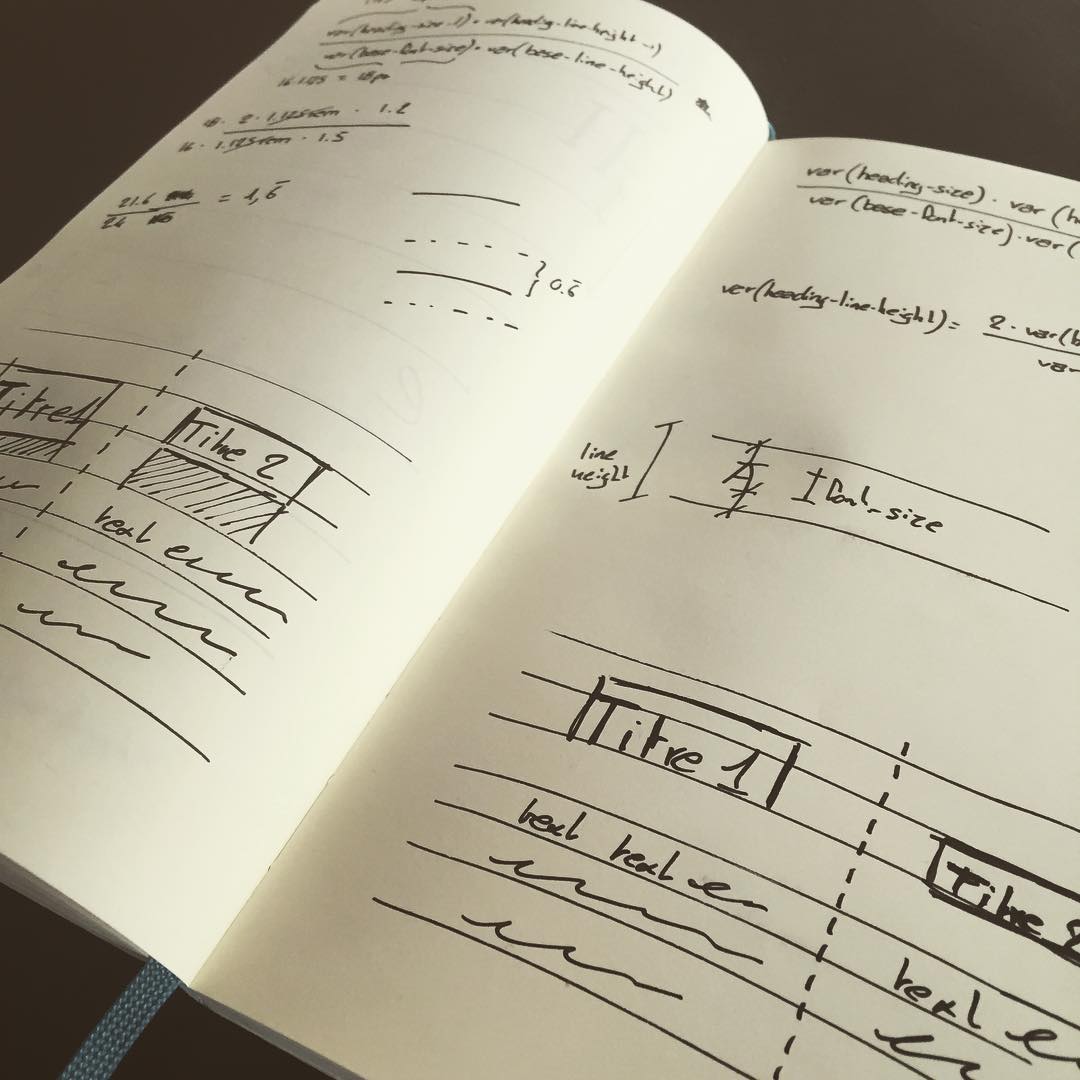 var(heading-size-1) · var(heading-line-height-1)
var(base-font-size) · var(base-line-height)
16·1.125 = 18px
2 · 1.125rem · 1.2
16 · 1.125rem · 1.5
21.6
24
= 1,6̅
0.6̅
Titre 1
Titre 2
text
var(heading-size) · var(he
var(base-font-size) · var(
var(heading-line-height) = 2 · var(b
var
line
height
A
font-size
Titre 1
text text
Titre 2
text